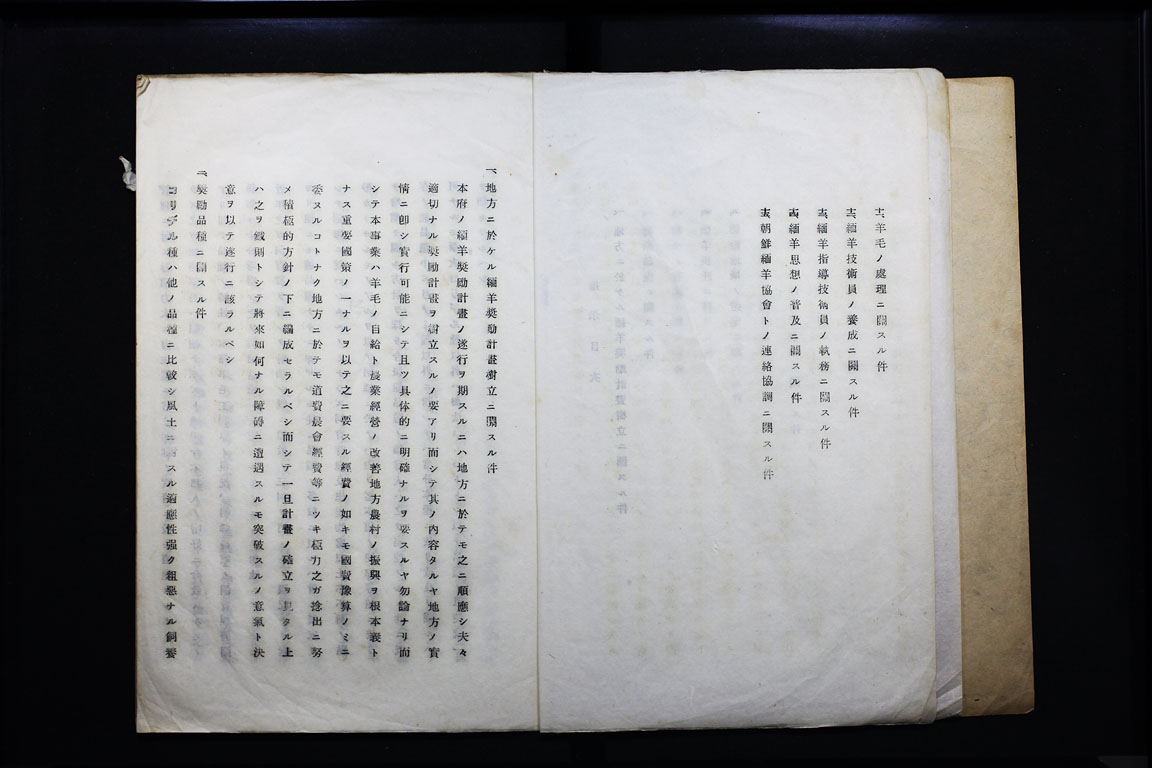 羊毛ノ處理ニ關スル件
緬羊技術員ノ養成ニ關スル件
緬羊指導技術員ノ執務ニ關スル件
緬羊思想ノ普及ニ關スル件
朝鮮緬羊協會トノ連絡協調ニ關スル件
一、地方ニ於ケル緬羊奬勵計畫樹立ニ關スル件
本府ノ緬羊奬勵計畫ノ遂行ヲ期スルニハ地方ニ於テモ之ニ順應シ夫々
適切ナル奬勵計畫ヲ樹立スルノ要アリ而シテ其ノ內容タルヤ地方ノ實
情ニ卽シ實行可能ニシテ且ツ具体的ニ明確ナルヲ要スルヤ勿論ナリ而
シテ本事業ハ羊毛ノ自給ト農業經營ノ改善地方農村ノ振興ヲ根本義ト
ナス重要國策ノ一ナルヲ以テ之ニ要スル經費ノ如キモ國費豫算ノミニ
委スルコトナク地方ニ於テモ道費農會經費等ニツキ極力之ガ捻出ニ努
メ積極的方針ノ下ニ編成セラルベシ而シテ一旦計畫ノ確立ヲ見タル上
ハ之ヲ鐵則トシテ將來如何ナル障碍ニ遭遇スルモ突破スルノ意氣ト決
意ヲ以テ遂行ニ該ラルベシ
二、奬勵品種ニ關スル件
コリデル種ハ他ノ品種ニ比較シ風土ニ スル適應性强ク粗惡ナル飼養